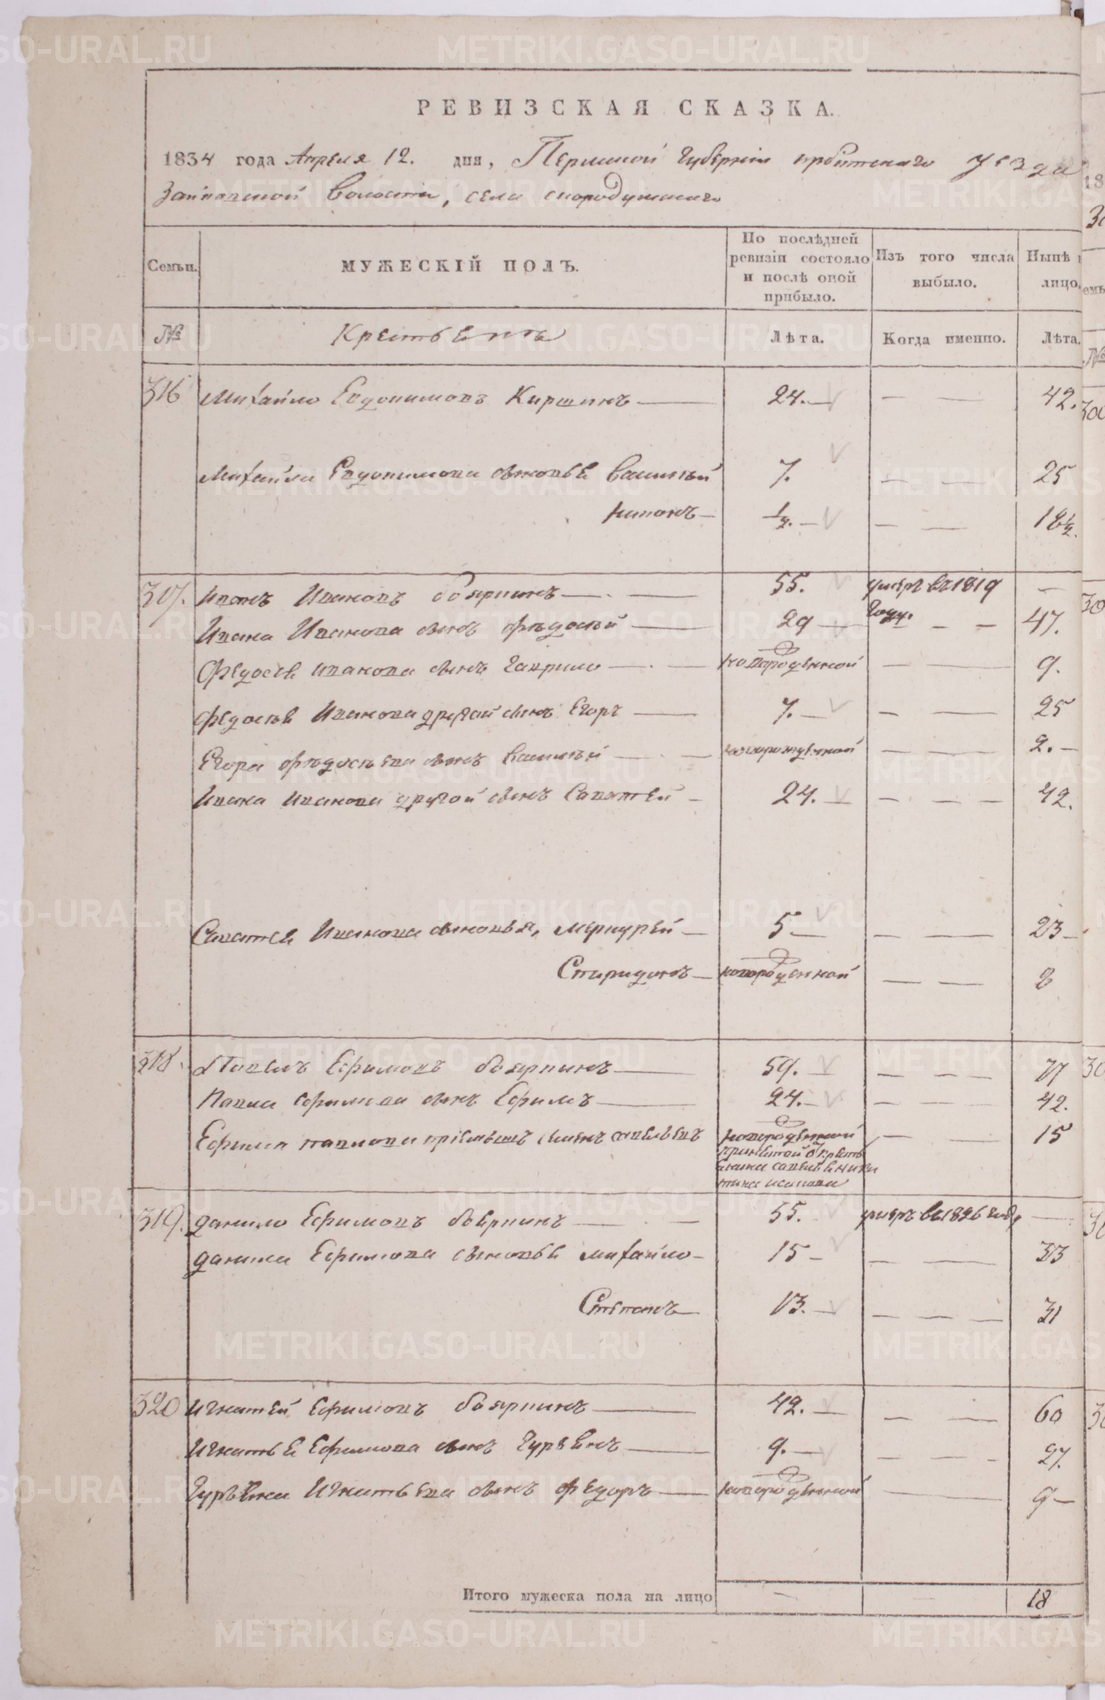 РЕВИЗСКАЯ СКАЗКА.
1834 года Апреля 12. дня, Пермской Губернии ирбитскаго уезда
Зайковской Волости, села скородумскаго
Семьи.
МУЖЕСКІЙ ПОЛЪ.
По послѣдней ревизіи состояло и послѣ оной прибыло.
Изъ того числа выбыло.
Нынѣ
лицо.
№
Крестьянъ
Лѣта.
Когда именно.
Лѣта.
316 Михайло Евдокимовъ Киршинъ 24. — 42.
Михайла Евдокимова сыновья Василий 7. — 25
Никонъ 1/2. — 18 1/2.
317. Иванъ Ивановъ бояркинъ 55. умеръ въ 1819 году. —
Ивана Иванова сынъ Федосей 29 — 47.
Федосея Иванова сынъ Гаврило новорожденной — 9.
Федосея Иванова другой сынъ Егоръ 7. — 25
Егора Федосеева сынъ Василий новорожденной — 2.
Ивана Иванова другой сынъ Саватей 24. — 42.
Саватея Иванова сыновья, Меркурей 5 — 23
Спиридонъ новорожденной — 8
318. Павелъ Ефимовъ бояркинъ 59. — 77
Павла Ефимова сынъ Ефимъ 24. — 42.
Ефима Павлова приемышъ новорожденной — 15
319. данило Ефимовъ бояркинъ 55. умеръ въ 1826 год. —
данила Ефимова сыновья михайло 15 — 33
Степанъ 13. — 31
320 Игнатей Ефимовъ бояркинъ 42. — 60
Игнатья Ефимова сынъ Гурьянъ 9. — 27.
Гурьяна Игнатьева сынъ Федоръ новорожденной — 9
Итого мужеска пола на лицо — — 18
METRIKI.GASO-URAL.RU